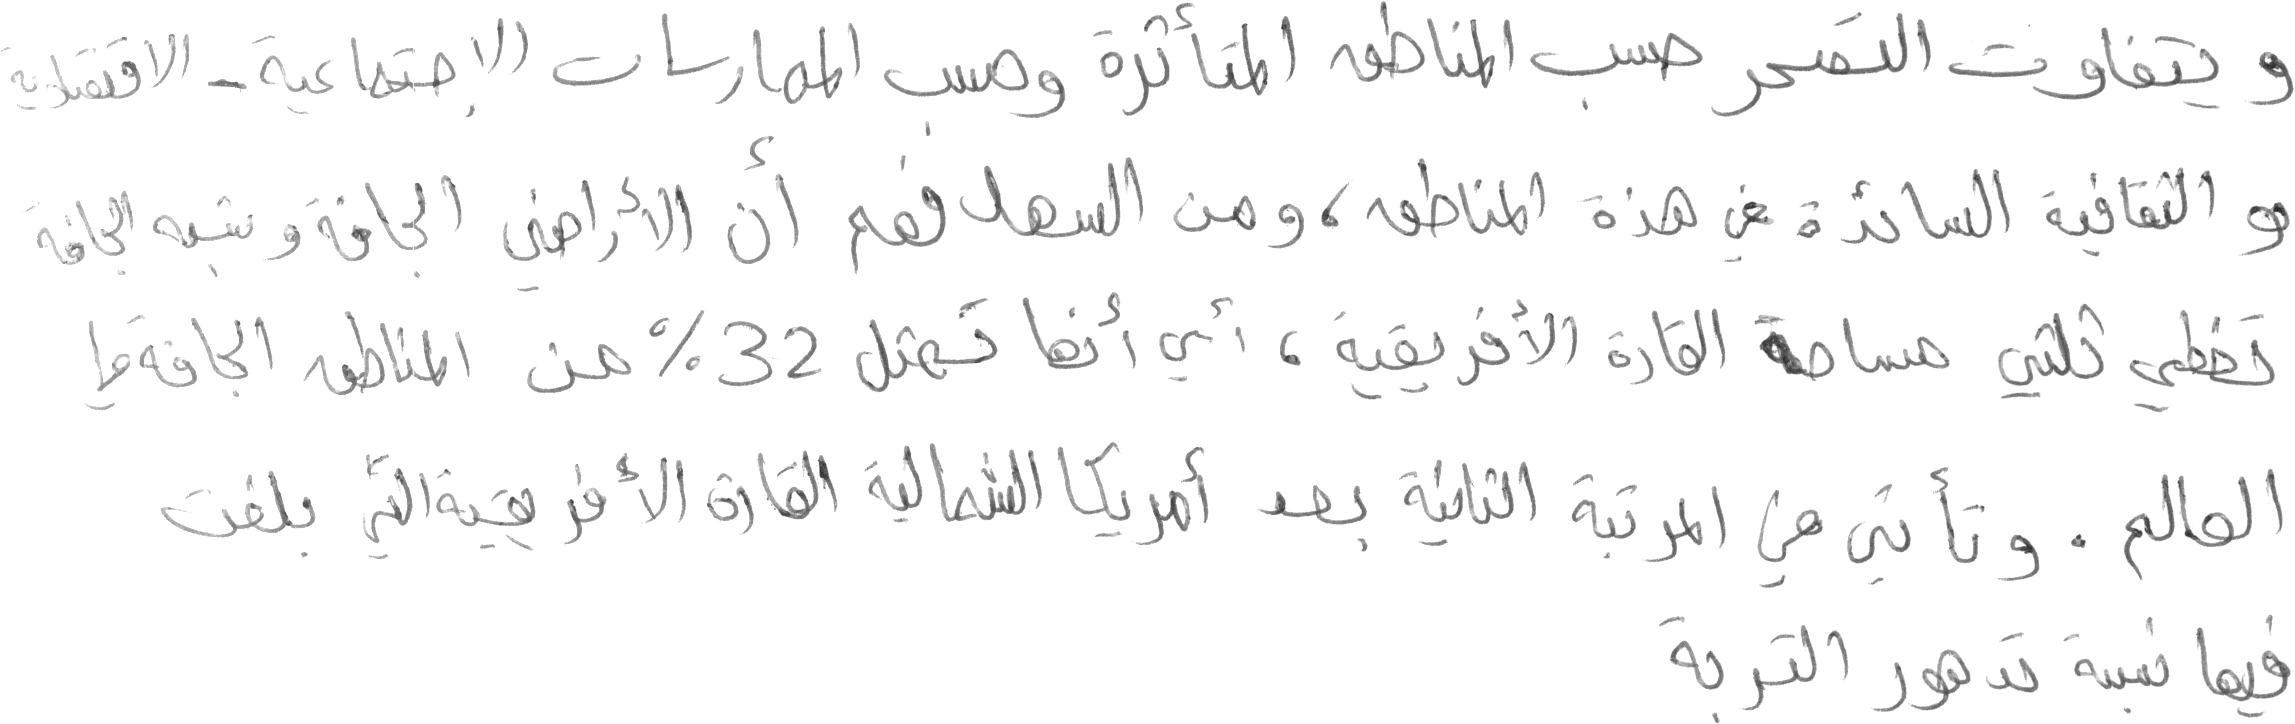 و يتفاوت التصحر حسب المناطق المتأثرة وحسب الممارسات الإجتماعية - الاقتصادية
و الثقافية السائدة في هذة المناطق، ومن السهل فهم أن الأراضي الجافة وشبه الجافة
تغطي ثلثي مساحة القارة الأفريقية، أي أنها تمثل 32% من المناطق الجافة في
العالم. وتأتي في المرتبة الثانية بعد أمريكا الشمالية القارة الأفريقية التي بلغت
فيها نسبة تدهور التربة